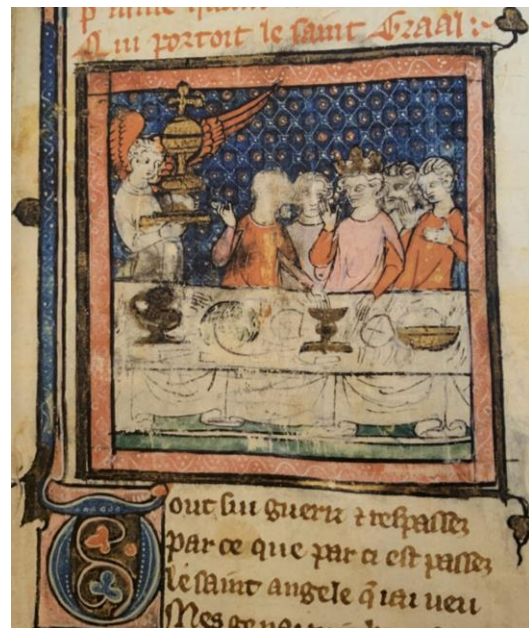 Qui portoit le saint Graal :~
Tout sui gueriz ⁊ respassez
par ce que par ci est passez
le saint angele q̃ iai veu
Mes ge